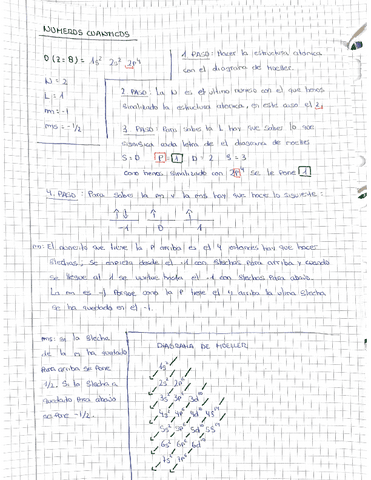 NÚMEROS CUÁNTICOS
O (Z=8) = 1s² 2s² 2p⁴
N = 2
L = 1
m = -1
ms = -1/2
1. PASO: Hacer la estructura atómica
con el diagrama de moeller.
2. PASO: La N es el último numero con el que hemos
finalizado la estructura atómica, en este caso el 2.
3. PASO: Para saber la L hay que saber lo que
significa cada letra de el diagrama de moeller
S = 0 P = 1 D = 2 S = 3
como hemos finalizado con 2p⁴ se le pone 1
4. PASO: Para saber la m y la ms hay que hacer lo siguiente:
-1 0 1
m: El numerito que tiene la P arriba es el 4 entonces hay que hacer
flechas. Se empieza desde el -1 con flechas para arriba y cuando
se llegue al 1 se vuelve hasta el -1 con flechas para abajo.
La m es -1 porque como la P tiene el 4 arriba la ultima flecha
se ha quedado en el -1.
ms: si la flecha
de la m ha quedado
para arriba se pone
1/2. Si la flecha a
quedado para abajo
se pone -1/2.
DIAGRAMA DE MOELLER
1s²
2s² 2p⁶
3s² 3p⁶ 3d¹⁰
4s² 4p⁶ 4d¹⁰
5s² 5p⁶ 5d¹⁰
6s² 6p⁶ 6d¹⁰
7s² 7p⁶